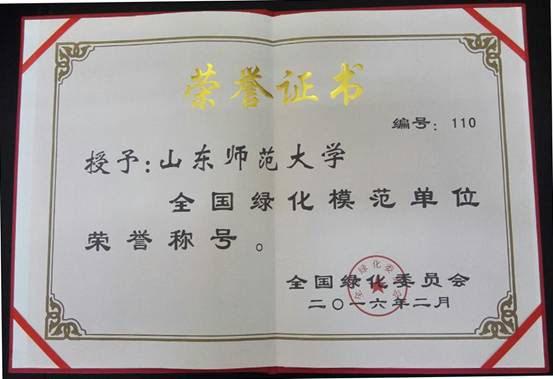 荣誉证书
编号：110
授予：山东师范大学
全国绿化模范单位
荣誉称号。
全国绿化委员会
二〇一六年二月